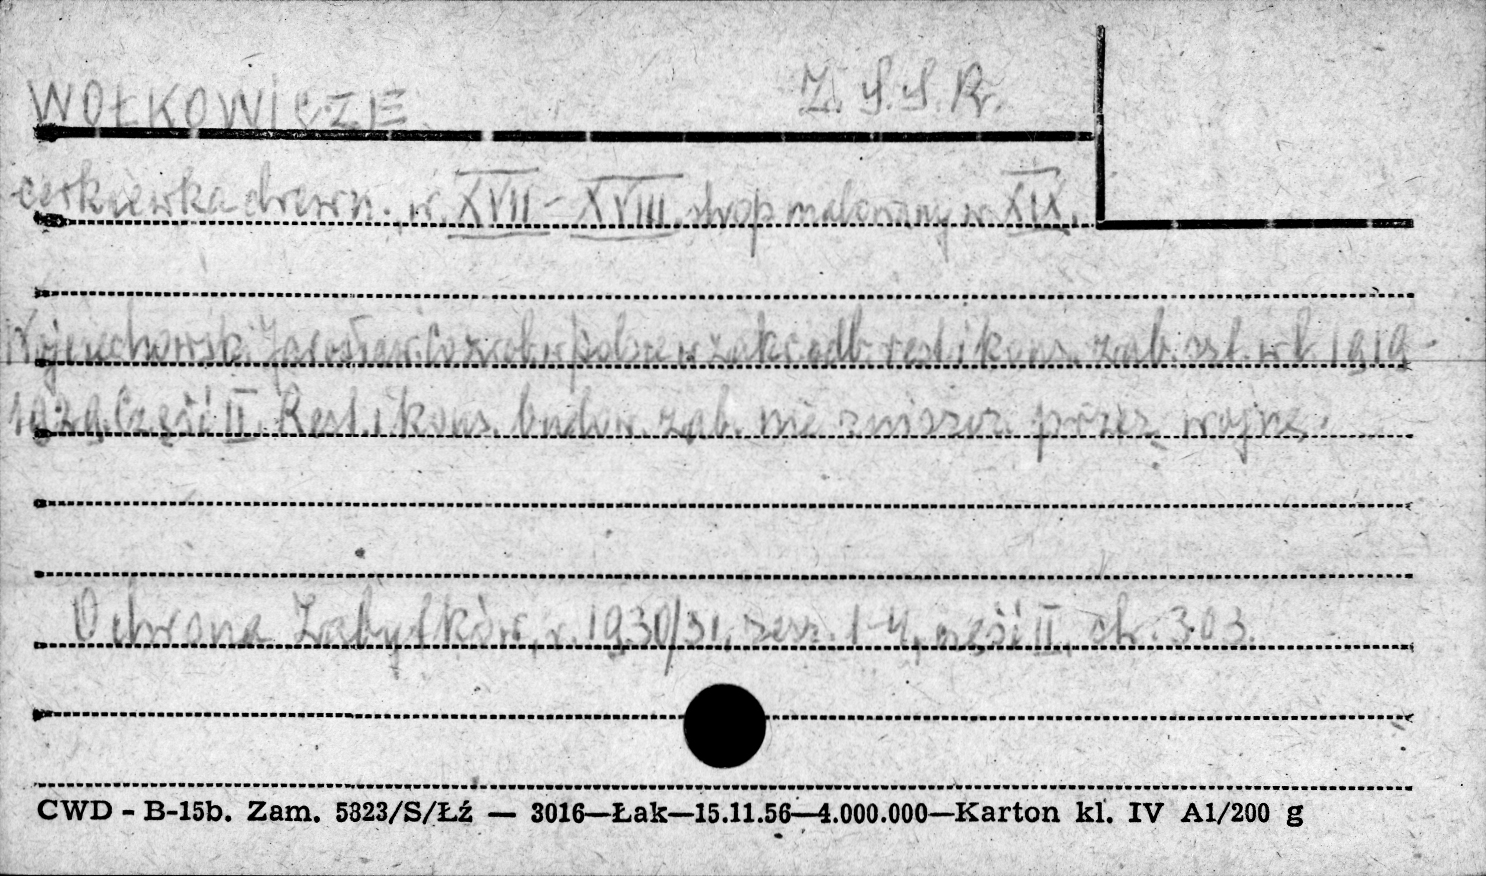 WOŁKOWICZE Z. S. S. R.
cerkiewka drewn. w. XVII - XVIII strop malowany w. XIX.
Wojciechowski Jarosław. Co zrobiono w Polsce w zakr. odb. rest. i kons. zab. szt. w l. 1919-
1929. Część II. Rest. i kons. budow. zab. nie zniszcz. przez wojnę.
Ochrona Zabytków, r. 1930/31, zesz. 1-4, część II, str. 303.
CWD - B-15b. Zam. 5823/S/Łź — 3016—Łak—15.11.56—4.000.000—Karton kl. IV A1/200 g